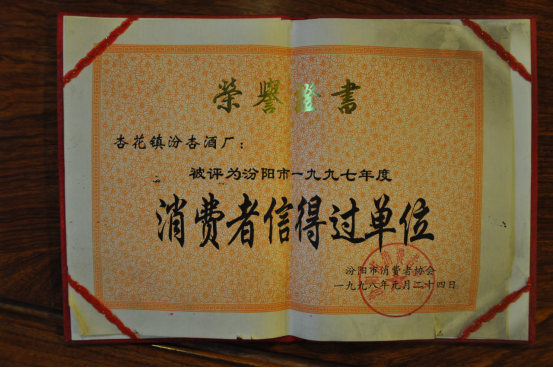 荣誉證書
杏花镇汾杏酒厂：
被评为汾阳市一九九七年度
消费者信得过单位
汾阳市消费者协会
一九九八年元月二十四日